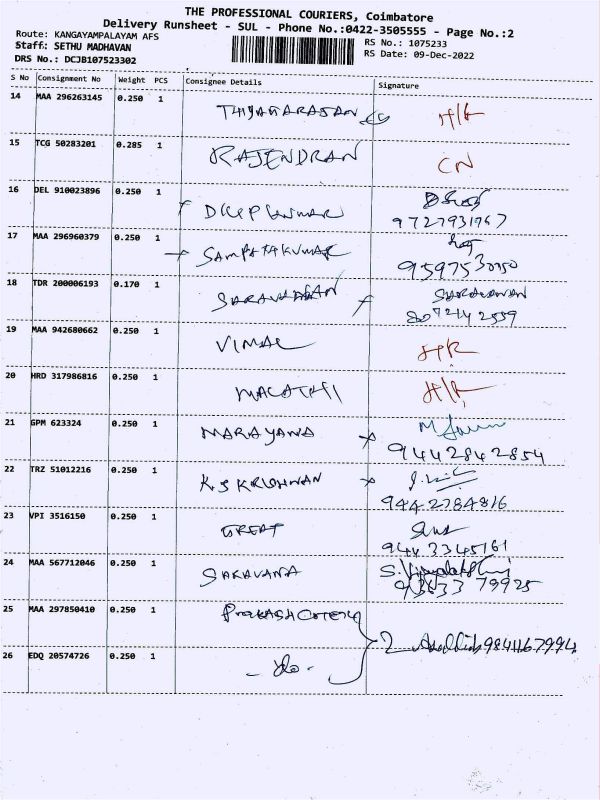 THE PROFESSIONAL COURIERS, Coimbatore
Delivery Runsheet - SUL - Phone No.:0422-3505555 - Page No.:2
Route: KANGAYAMPALAYAM AFS
RS No.: 1075233
Staff: SETHU MADHAVAN
RS Date: 09-Dec-2022
DRS No.: DCJB107523302
S No Consignment No Weight PCS Consignee Details Signature
14 MAA 296263145 0.250 1 THIYAGARAJAN H/R
15 TCG 50283201 0.285 1 RAJENDRAN CN
16 DEL 910023896 0.250 1 DILIP KUMAR
9727931767
17 MAA 296960379 0.250 1 SAMPATHKUMAR
9597530750
18 TDR 200006193 0.170 1 SARAVANAN SARAVANAN
8072142559
19 MAA 942680662 0.250 1 VIMAL H/R
20 HRD 317986816 0.250 1 MALATHI H/R
21 GPM 623324 0.250 1 NARAYANA
9442842854
22 TRZ 51012216 0.250 1 K.S KRISHNAN
9442784816
23 VPI 3516150 0.250 1 GREAT
9443345161
24 MAA 567712046 0.250 1 SARAVANA S. Vijayalakshmi
93633 79925
25 MAA 297850410 0.250 1 PRAKASH
2 9841167994
26 EDQ 20574726 0.250 1 - do -